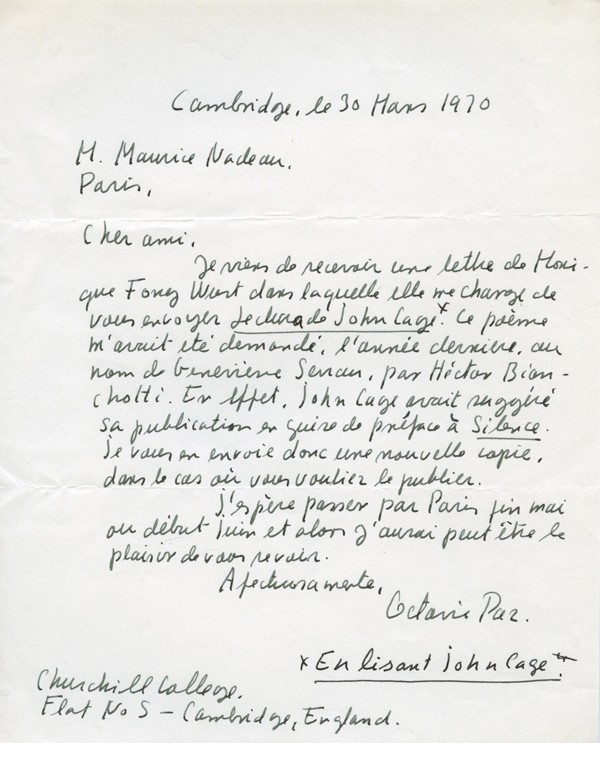 Cambridge, le 30 Mars 1970
M. Maurice Nadeau,
Paris,
Cher ami,
Je viens de recevoir une lettre de Moni-
que Fong Wust dans laquelle elle me charge de
vous envoyer Lectura de John Cage*. Ce poème
m'avait été demandé, l'année dernière, au
nom de Geneviève Serrau, par Héctor Bian-
chotti. En effet, John Cage avait suggéré
sa publication en guise de préface à Silence.
Je vous en envoie donc une nouvelle copie,
dans le cas où vous vouliez le publier.
J'espère passer par Paris fin mai
ou début Juin et alors j'aurai peut être le
plaisir de vous revoir.
Afectuosamente,
Octavio Paz.
* En lisant John Cage*.
Churchill College.
Flat No 5 – Cambridge, England.